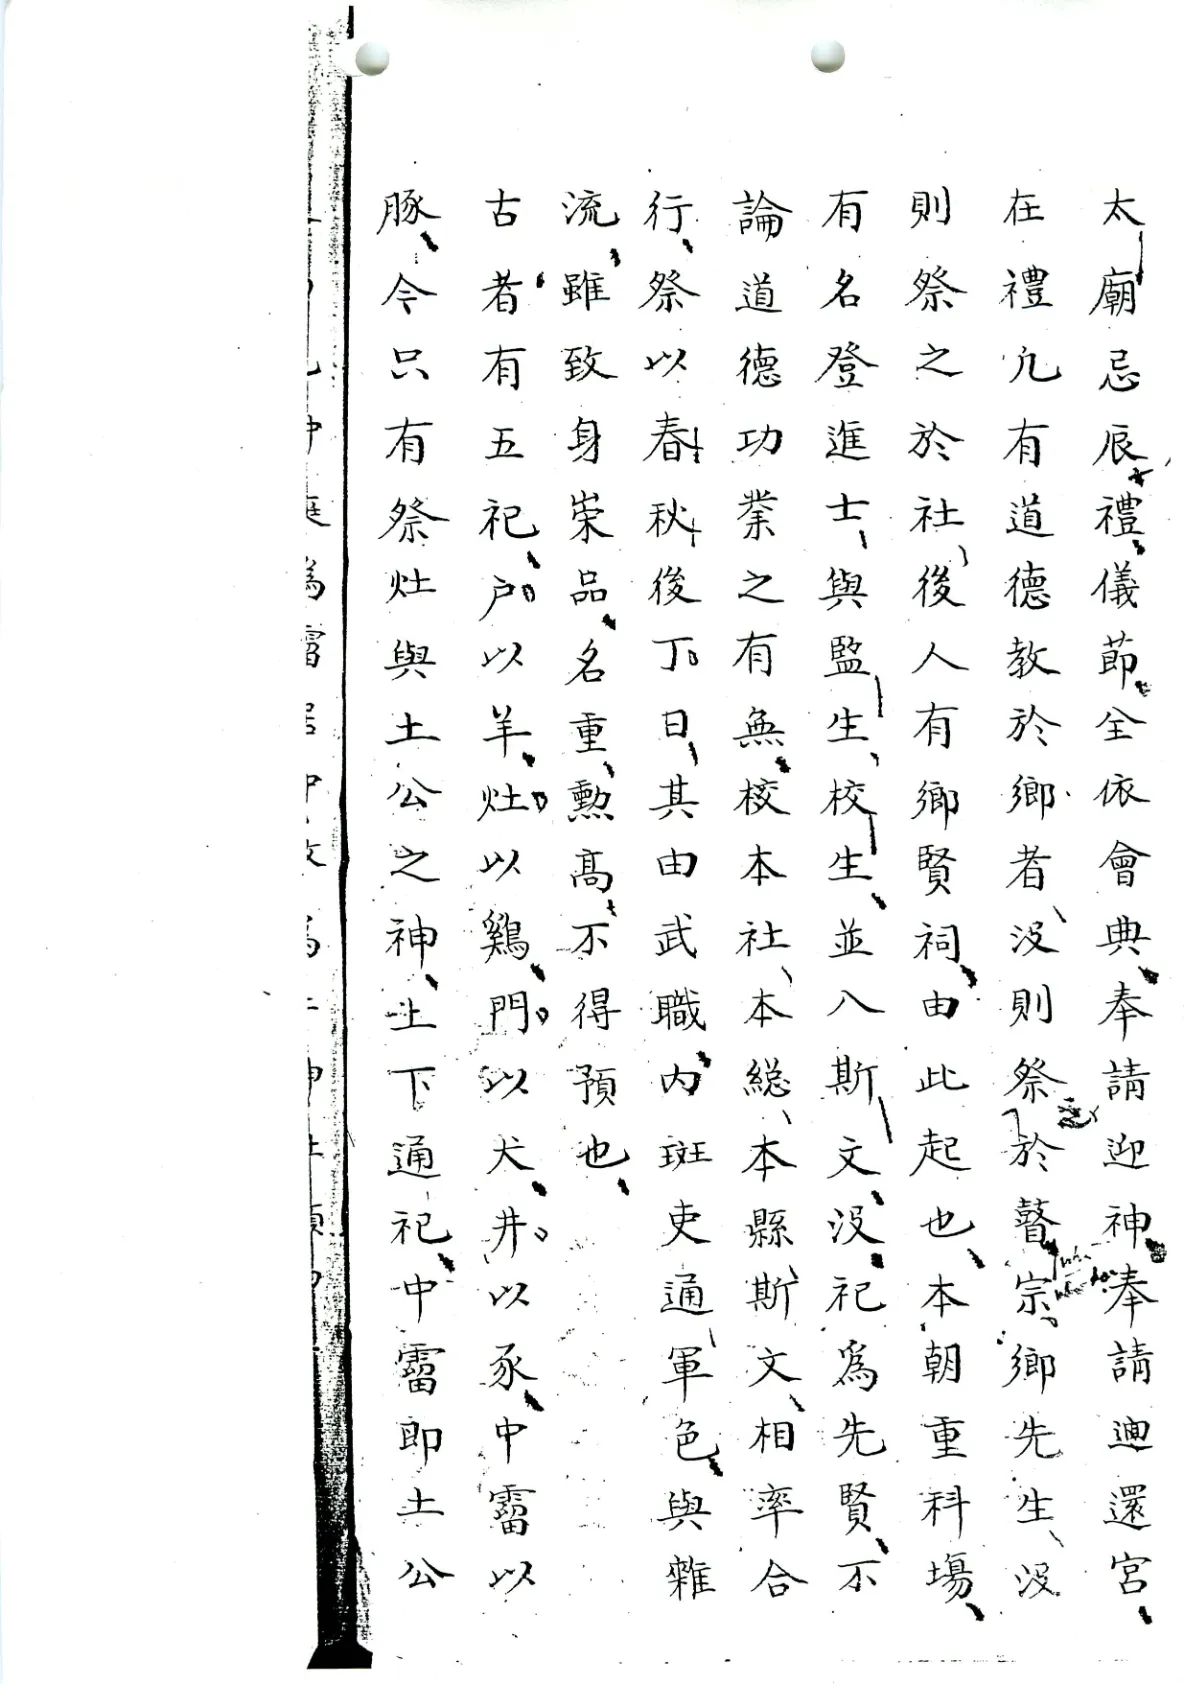 太廟忌辰禮儀節全依會典奉請迎神奉請迎還宮
在禮凢有道德教於鄉者没則祭於瞽宗鄉先生没
則祭之於社後人有鄉賢祠由此起也本朝重科場
有名登進士與監生校生並入斯文没祀為先賢不
論道德功業之有無校本社本總本縣斯文相率合
行祭以春秋後丁日其由武職内班吏通軍色與雜
流雖致身崇品名重勲高不得預也
古者有五祀户以羊灶以鷄門以犬井以豕中霤以
豚今只有祭灶與土公之神上下通祀中霤即土公